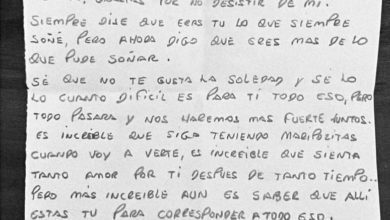 GRACIAS POR NO DESISTIR DE MI.
SIEMPRE DIJE QUE ERAS TU LO QUE SIEMPRE
SOÑÉ, PERO AHORA DIGO QUE ERES MAS DE LO
QUE PUDE SOÑAR.
SÉ QUE NO TE GUSTA LA SOLEDAD Y SÉ LO
LO CUANTO DIFICIL ES PARA TÍ TODO ESO, PERO
TODO PASARA Y NOS HAREMOS MAS FUERTE JUNTOS.
ES INCREIBLE QUE SIGA TENIENDO MARIPOZITAS
CUANDO VOY A VERTE, ES INCREIBLE QUE SIENTA
TANTO AMOR POR TI DESPUES DE TANTO TIEMPO..
PERO MÁS INCREIBLE AUN ES SABER QUE ALLÍ
ESTAS TU PARA CORRESPONDER A TODO ESO.